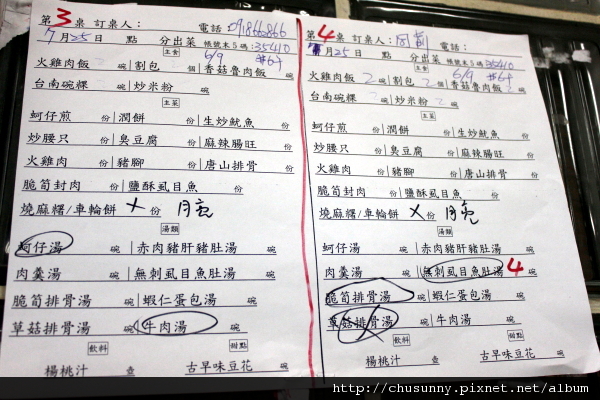 第3桌 訂桌人： 電話：
7月25日 點 分出菜 帳號末5碼：35410
主食 6/9 #64
火雞肉飯 碗 割包 個 香菇魯肉飯 碗
台南碗粿 碗 炒米粉 碗
主菜
蚵仔煎 份 潤餅 份 生炒魷魚 份
炒腰只 份 臭豆腐 份 麻辣腸旺 份
火雞肉 份 豬腳 份 唐山排骨 份
脆筍封肉 份 鹽酥虱目魚 份
燒麻糬/車輪餅 X 份
湯類
蚵仔湯 碗 赤肉豬肝豬肚湯 碗
肉羹湯 碗 無刺虱目魚肚湯 碗
脆筍排骨湯 碗 蝦仁蛋包湯 碗
草菇排骨湯 碗 牛肉湯 碗
飲料 甜點
楊桃汁 壺 古早味豆花 碗
第4桌 訂桌人： 電話：
月25日 點 分出菜 帳號末5碼：35410
主食 6/9 #64
火雞肉飯 2 碗 割包 2 個 香菇魯肉飯 碗
台南碗粿 碗 炒米粉 2 碗
主菜
蚵仔煎 份 潤餅 份 生炒魷魚 份
炒腰只 份 臭豆腐 份 麻辣腸旺 份
火雞肉 份 豬腳 份 唐山排骨 份
脆筍封肉 份 鹽酥虱目魚 份
燒麻糬/車輪餅 X 份
湯類
蚵仔湯 碗 赤肉豬肝豬肚湯 碗
肉羹湯 碗 無刺虱目魚肚湯 4 碗
脆筍排骨湯 碗 蝦仁蛋包湯 碗
草菇排骨湯 碗 牛肉湯 碗
飲料 甜點
楊桃汁 壺 古早味豆花 碗
http://chusunny.pixnet.net/album